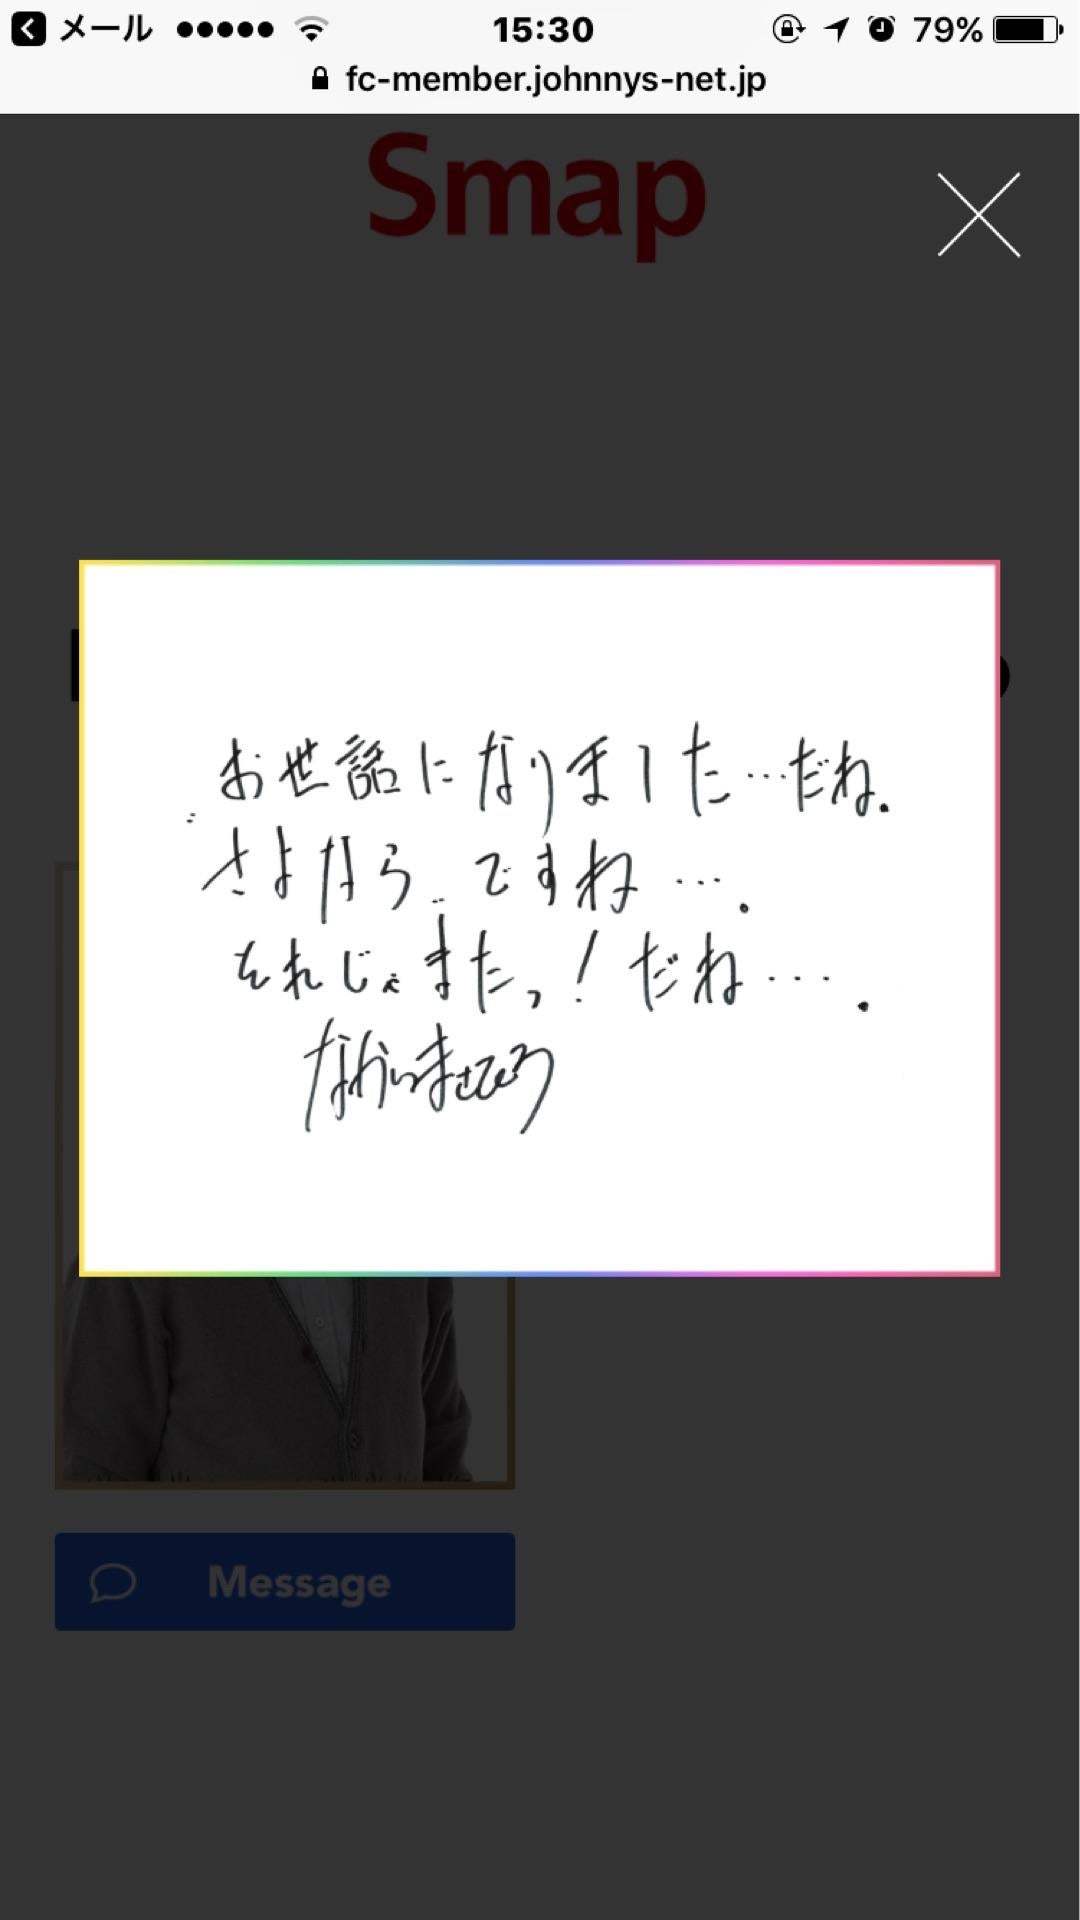 メール
15:30
79%
fc-member.johnnys-net.jp
Smap
お世話になりました…だね.
さよなら..ですね….
それじゃまたっ!だね….
なかいまさひろ
Message